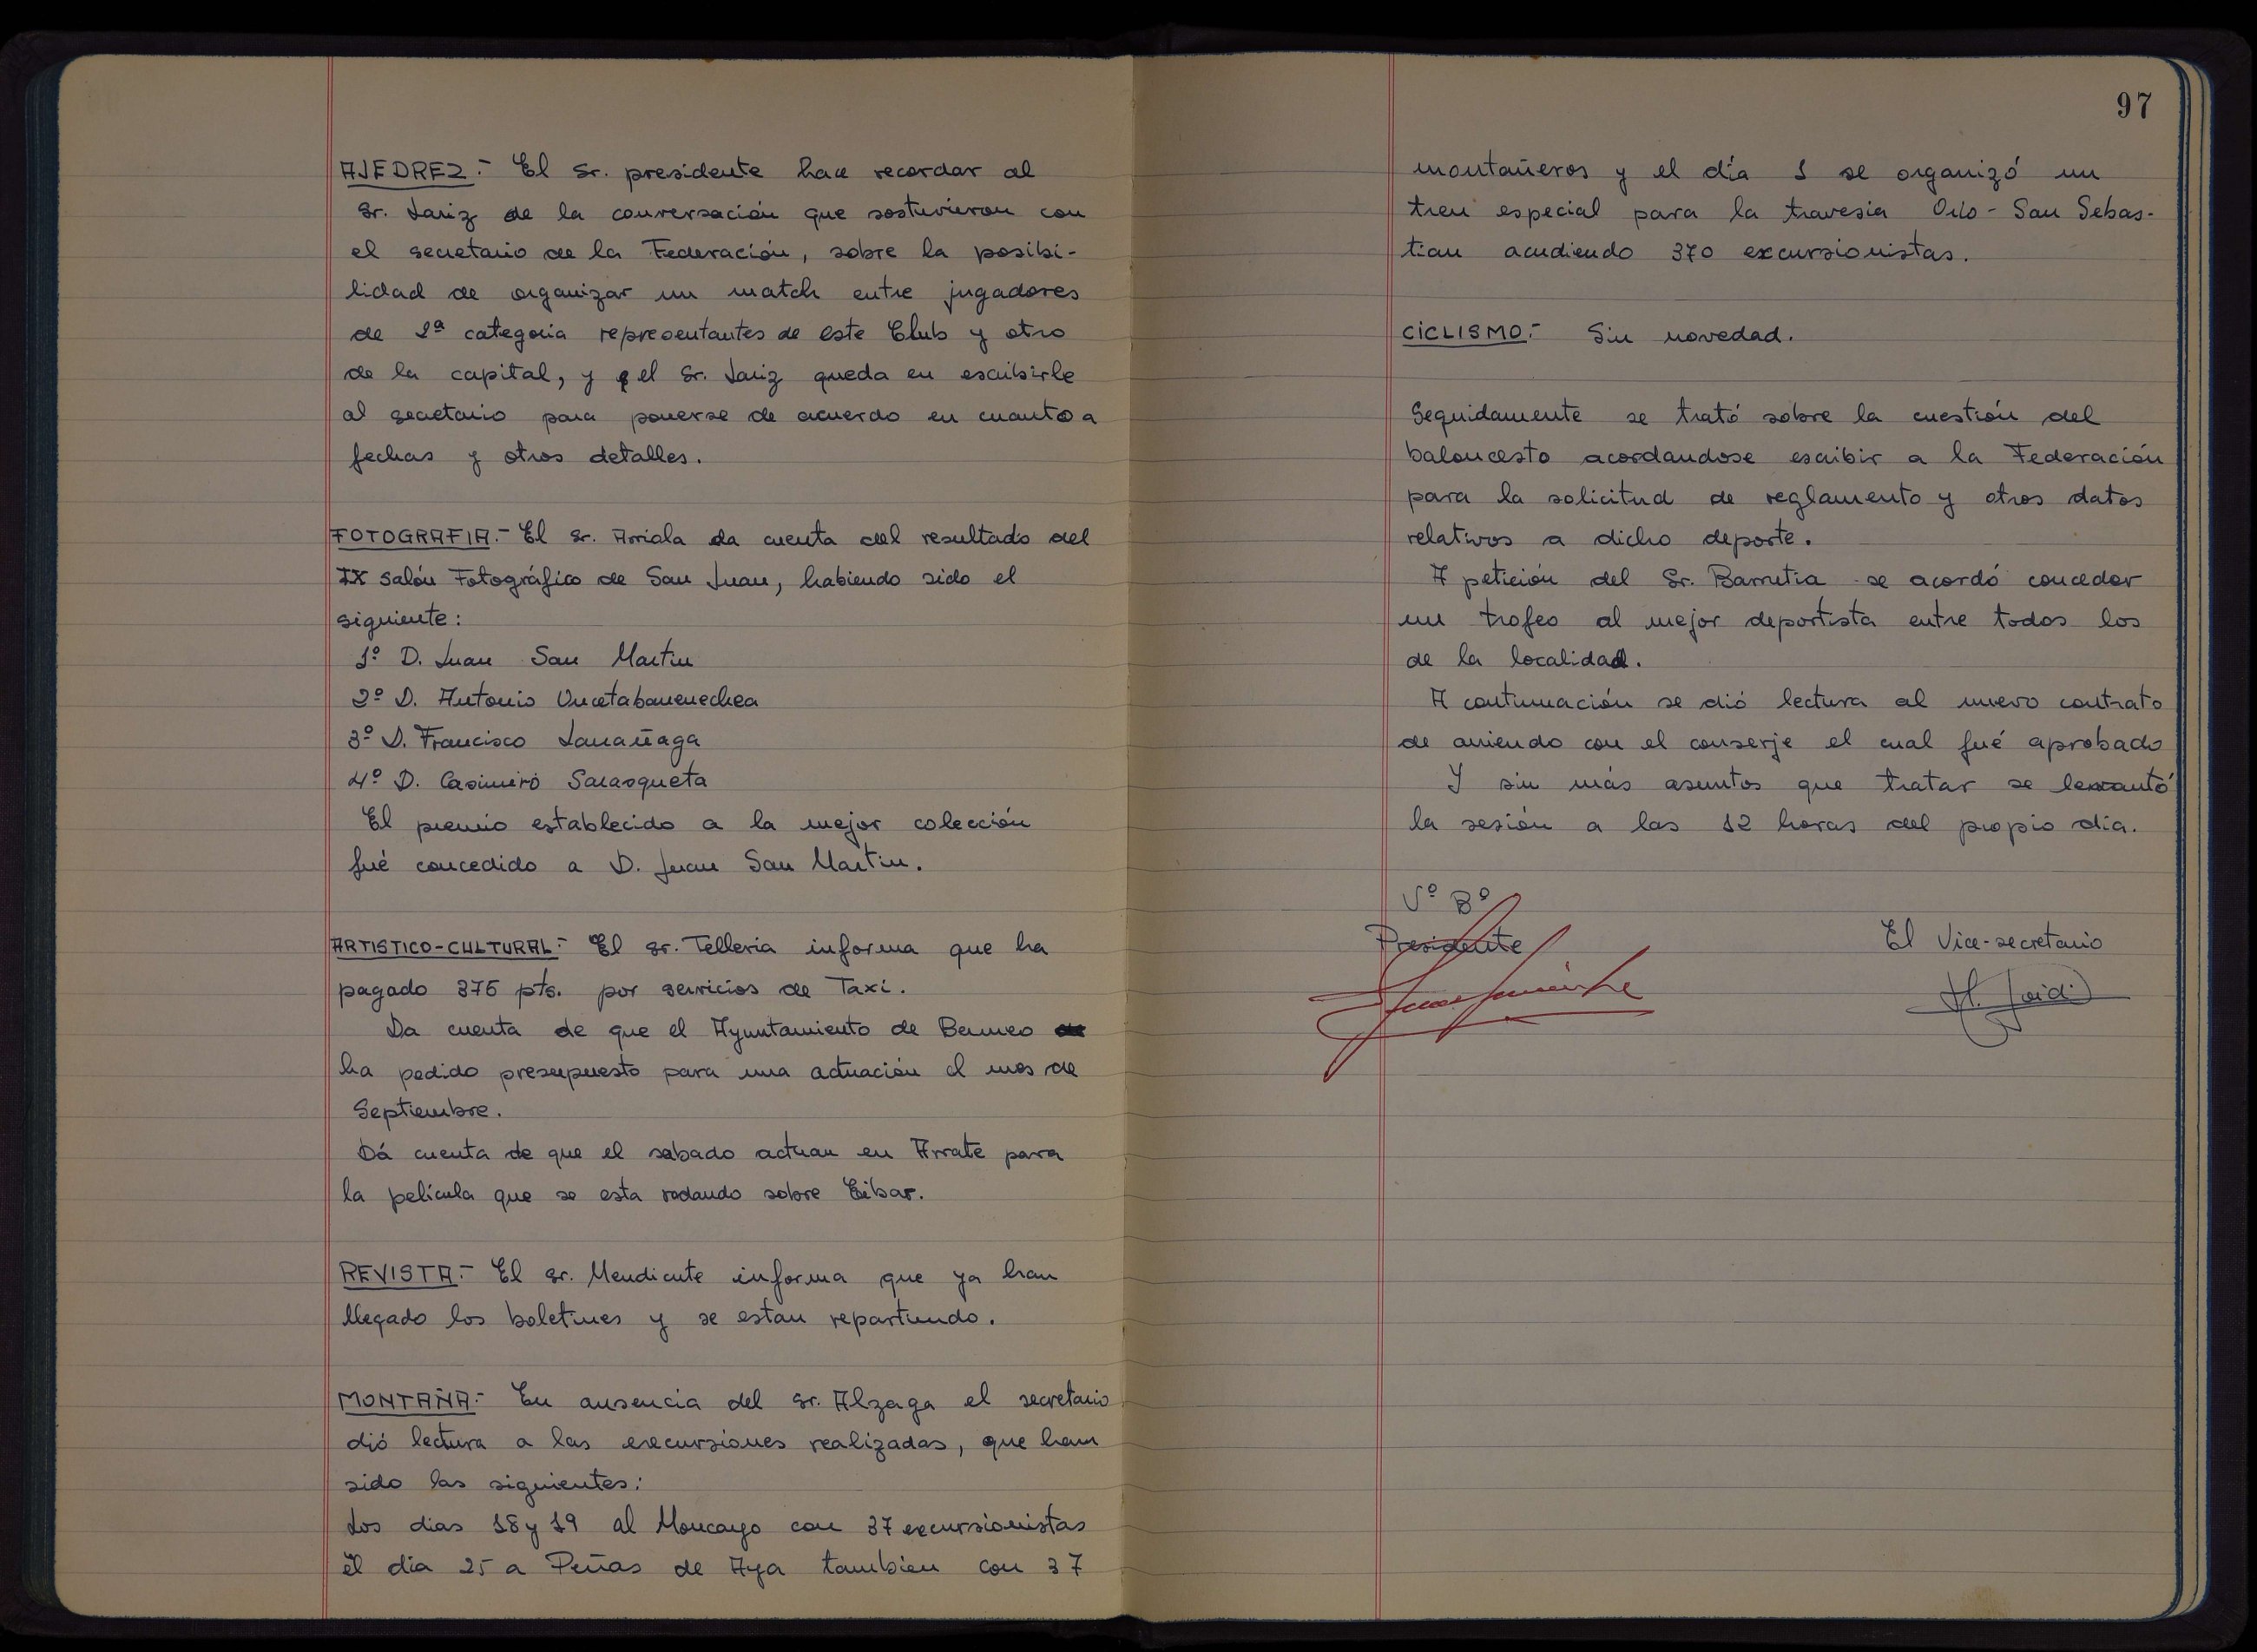 AJEDREZ.- El Sr. presidente hace recordar al
Sr. Lariz de la conversación que sostuvieron con
el secretario de la Federación, sobre la posibi-
lidad de organizar un match entre jugadores
de 1ª categoria representantes de este Club y otro
de la capital, y el Sr. Lariz queda en escribirle
al secretario para ponerse de acuerdo en cuanto a
fechas y otros detalles.
FOTOGRAFIA.- El Sr. Arriola da cuenta del resultado del
IX Salón Fotográfico de San Juan, habiendo sido el
siguiente:
1º D. Juan San Martin
2º D. Antonio Urcetabarrenechea
3º D. Francisco Larrañaga
4º D. Casimiro Sarasqueta
El premio establecido a la mejor colección
fué concedido a D. Juan San Martin.
ARTISTICO-CULTURAL.- El Sr. Telleria informa que ha
pagado 375 pts. por servicios de Taxi.
Da cuenta de que el Ayuntamiento de Bermeo
ha pedido presupuesto para una actuación el mes de
Septiembre.
Dá cuenta de que el sabado actuan en Arrate para
la película que se esta rodando sobre Eibar.
REVISTA.- El Sr. Mendicute informa que ya han
llegado los boletines y se estan repartiendo.
MONTAÑA.- En ausencia del Sr. Alzaga el secretario
dió lectura a las excursiones realizadas, que han
sido las siguientes:
Los dias 18 y 19 al Moncayo con 37 excursionistas
el dia 25 a Peñas de Aya tambien con 37
97
montañeros y el día 1 se organizó un
tren especial para la travesia Orio - San Sebas-
tian acudiendo 370 excursionistas.
CICLISMO.- Sin novedad.
Seguidamente se trató sobre la cuestión del
baloncesto acordandose escribir a la Federación
para la solicitud de reglamento y otros datos
relativos a dicho deporte.
A petición del Sr. Barrutia se acordó conceder
un trofeo al mejor deportista entre todos los
de la localidad.
A continuación se dió lectura al nuevo contrato
de arriendo con el conserje el cual fué aprobado
Y sin más asuntos que tratar se levantó
la sesión a las 12 horas del propio día.
Vº Bº
Presidente
El Vice-secretario